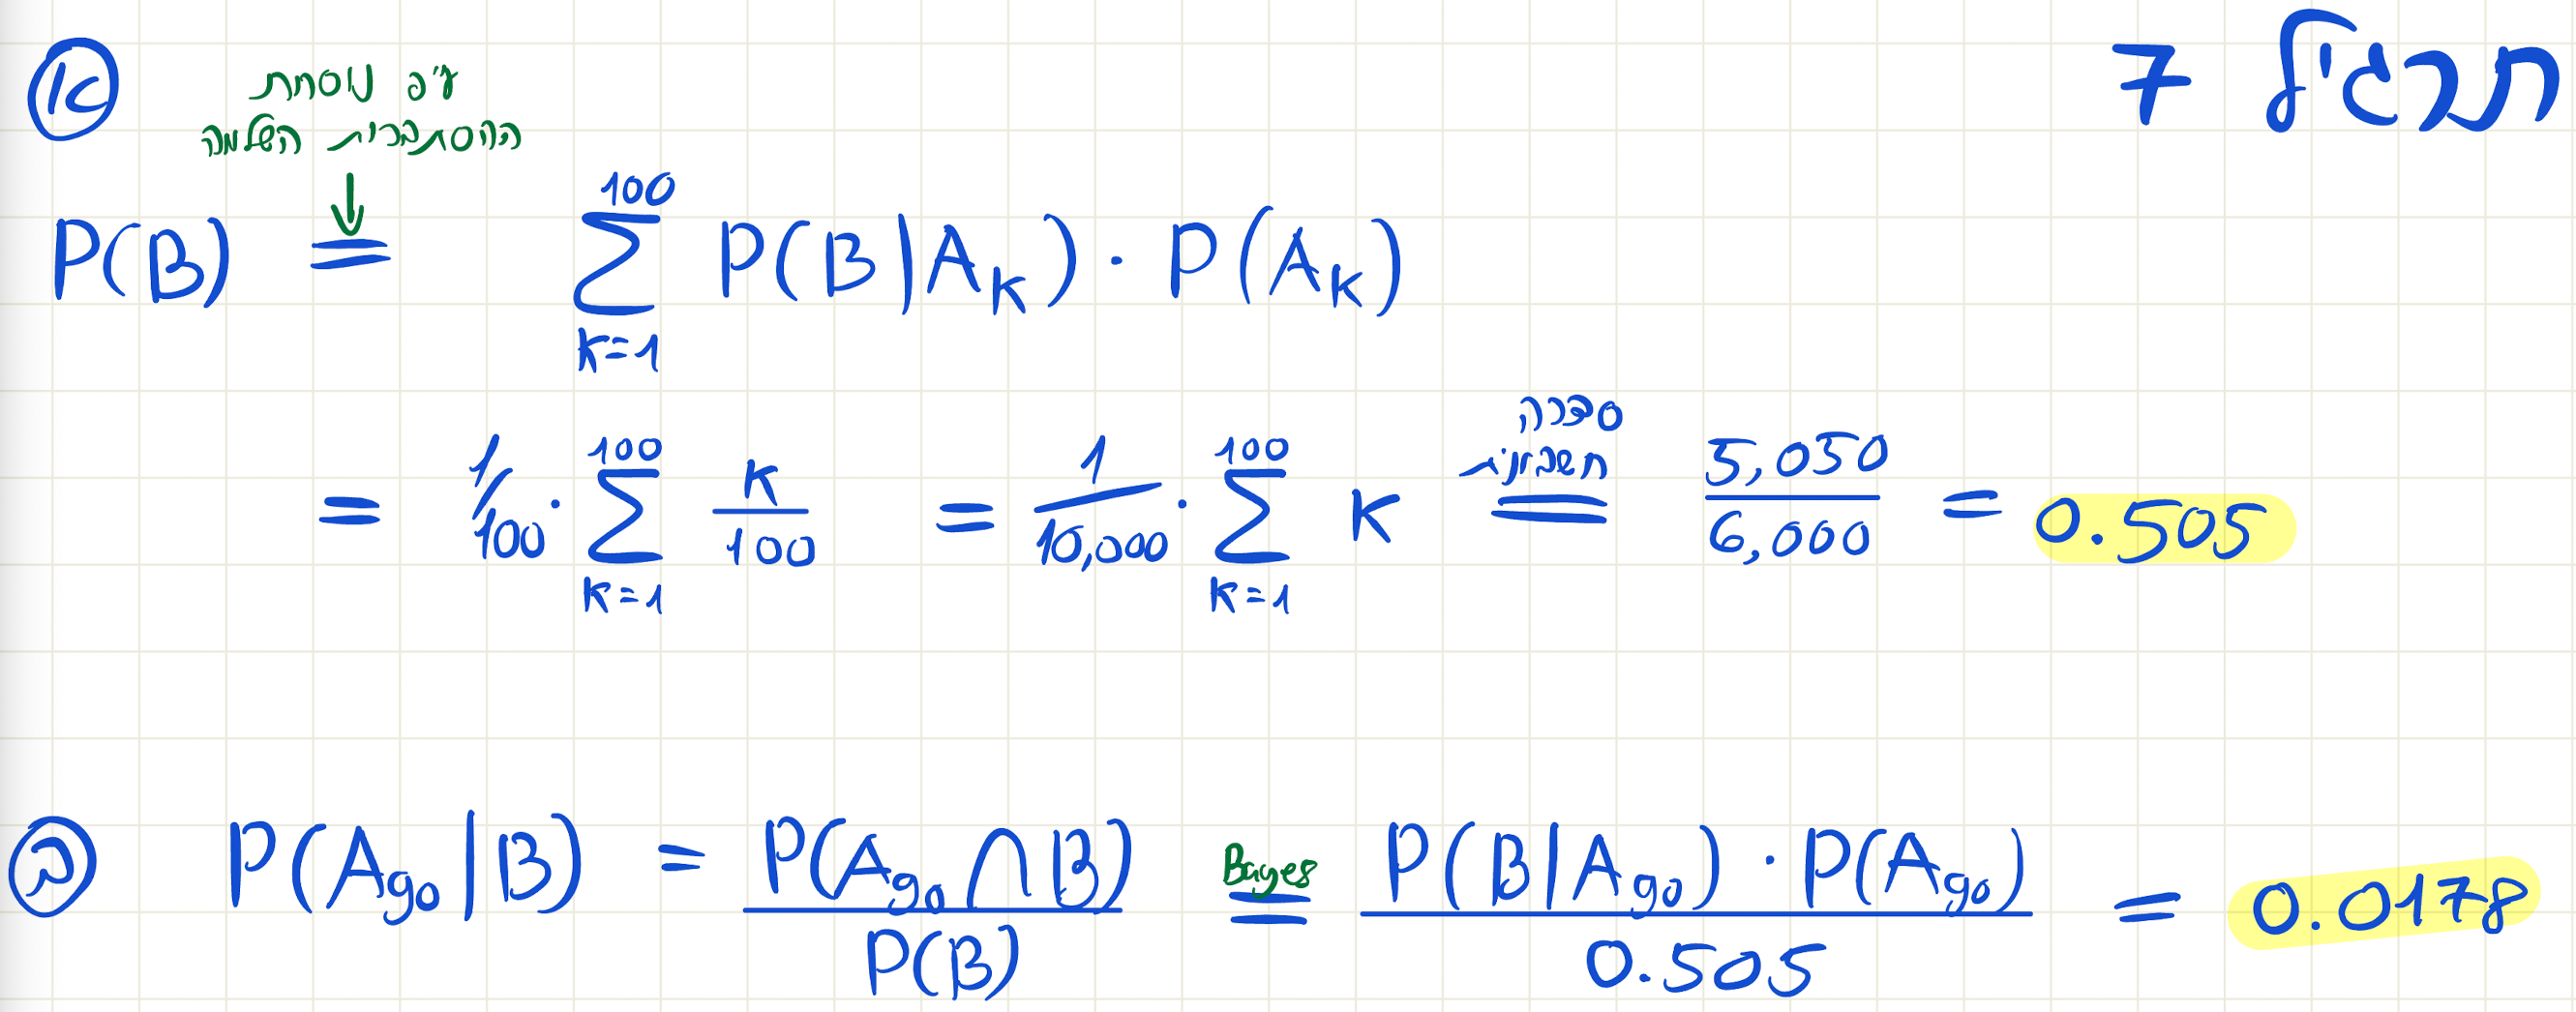 תרגיל 7
א
ע"פ נוסחת
ההסתברות השלמה
↓
P(B) = ∑_{k=1}^{100} P(B|A_k) · P(A_k)
= 1/100 · ∑_{k=1}^{100} k/100 = 1/10,000 · ∑_{k=1}^{100} k = (סדרה חשבונית) 5,050/6,000 = 0.505
ב P(A_90|B) = P(A_90 ∩ B)/P(B) = (Bayes) P(B|A_90) · P(A_90)/0.505 = 0.0178